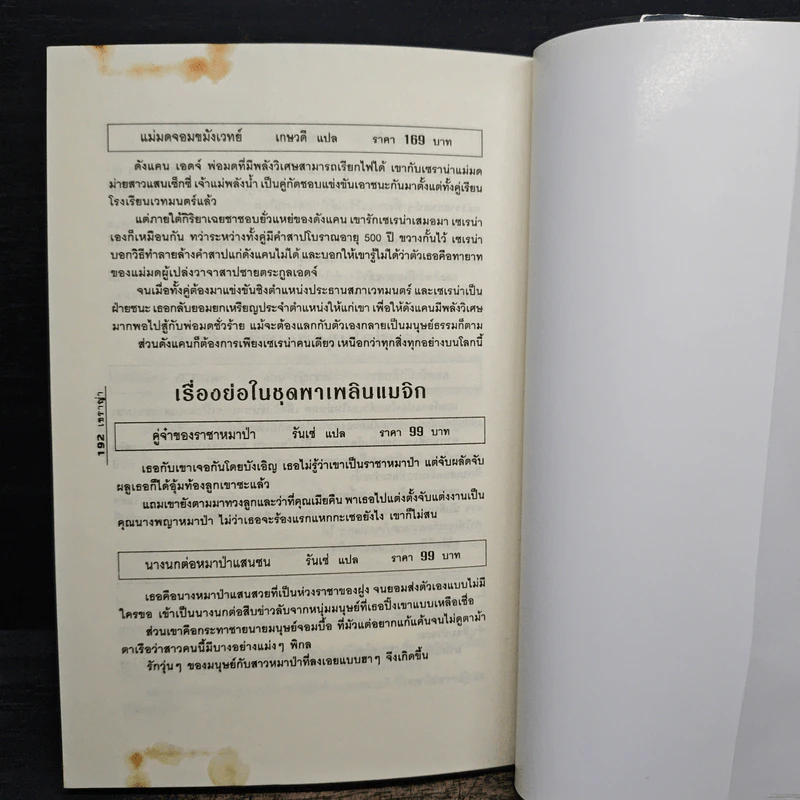 แม่มดจอมขมังเวทย์ เกษวดี แปล ราคา 169 บาท
ดังแคน เอดจ์ พ่อมดที่มีพลังวิเศษสามารถเรียกไฟได้ เขากับเซราน่าแม่มด
ม่ายสาวแสนเซ็กซี่ เจ้าแม่พลังน้ำ เป็นคู่กัดชอบแข่งขันเอาชนะกันมาตั้งแต่ทั้งคู่เรียน
โรงเรียนเวทมนตร์แล้ว
แต่ภายใต้กิริยาเฉยชาชอบยั่วแหย่ของดังแคน เขารักเซเรน่าเสมอมา เซเรน่า
เองก็เหมือนกัน ทว่าระหว่างทั้งคู่มีคำสาปโบราณอายุ 500 ปี ขวางกั้นไว้ เซเรน่า
บอกวิธีทำลายล้างคำสาปแก่ดังแคนไม่ได้ และบอกให้เขารู้ไม่ได้ว่าตัวเธอคือทายาท
ของแม่มดผู้เปล่งวาจาสาปชายตระกูลเอดจ์
จนเมื่อทั้งคู่ต้องมาแข่งขันชิงตำแหน่งประธานสภาเวทมนตร์ และเซเรน่าเป็น
ฝ่ายชนะ เธอกลับยอมยกเหรียญประจำตำแหน่งให้แก่เขา เพื่อให้ดังแคนมีพลังวิเศษ
มากพอไปสู้กับพ่อมดชั่วร้าย แม้จะต้องแลกกับตัวเองกลายเป็นมนุษย์ธรรมก็ตาม
ส่วนดังแคนก็ต้องการเพียงเซเรน่าคนเดียว เหนือกว่าทุกสิ่งทุกอย่างบนโลกนี้
เรื่องย่อในชุดพาเพลินแมจิก
คู่จ๋าของราชาหมาป่า รันเซ่ แปล ราคา 99 บาท
เธอกับเขาเจอกันโดยบังเอิญ เธอไม่รู้ว่าเขาเป็นราชาหมาป่า แต่จับผลัดจับ
ผลูเธอก็ได้อุ้มท้องลูกเขาซะแล้ว
แถมเขายังตามมาทวงลูกและว่าที่คุณเมียคืน พาเธอไปแต่งตั้งจับแต่งงานเป็น
คุณนางพญาหมาป่า ไม่ว่าเธอจะร้องแรกแหกกะเชอยังไง เขาก็ไม่สน
นางนกต่อหมาป่าแสนซน รันเซ่ แปล ราคา 99 บาท
เธอคือนางหมาป่าแสนสวยที่เป็นห่วงราชาของฝูง จนยอมส่งตัวเองแบบไม่มี
ใครขอ เข้าเป็นนางนกต่อสืบข่าวลับจากหนุ่มมนุษย์ที่เธอปิ๊งเขาแบบเหลือเชื่อ
ส่วนเขาคือกระทาชายนายมนุษย์จอมบื้อ ที่มัวแต่อยากแก้แค้นจนไม่ดูตาม้า
ตาเรือว่าสาวคนนี้มีบางอย่างแม่งๆ พิกล
รักวุ่นๆ ของมนุษย์กับสาวหมาป่าที่ลงเอยแบบฮาๆ จึงเกิดขึ้น
192 เชราซ่า